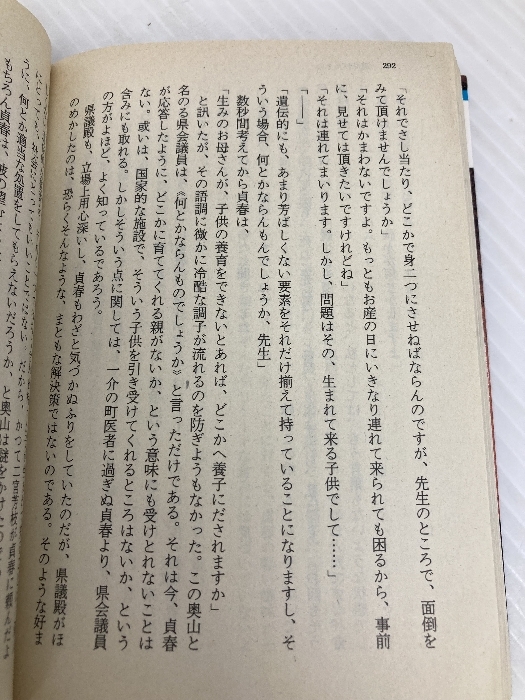 292
「それでさし当たり、どこかで身二つにさせねばならんのですが、先生のところで、面倒を
みて頂けませんでしょうか」
「それはかまわないですよ。もっともお産の日にいきなり連れて来られても困るから、事前
に、見せては頂きたいですけれどね」
「それは連れてまいります。しかし、問題はその、生まれて来る子供でして……」
「――」
「遺伝的にも、あまり芳ばしくない要素をそれだけ揃えて持っていることになりますし、そ
ういう場合、何とかならんもんでしょうか、先生」
数秒間考えてから貞春は、
「生みのお母さんが、子供の養育をできないとあれば、どこかへ養子にだされますか」
と訊いたが、その語調に微かに冷酷な調子が流れるのを防ぎようもなかった。この奥山と
名のる県会議員は、《何とかならんものでしょうか》と言っただけである。それは今、貞春
が応答したように、どこかに育ててくれる親がないか、という意味にも受けとれないことは
ない。或いは、国家的な施設で、そういう子供を引き受けてくれるところはないか、という
含みにも取れる。しかしそういう点に関しては、一介の町医者に過ぎぬ貞春より、県会議員
の方がよほど、よく知っているであろう。
県議殿も、立場上用心深いし、貞春もわざと気づかぬふりをしていたのだが、県議殿がほ
のめかしたのは、恐らくそんなような、まともな解決策ではないのである。そのような好ま
うに、何とか適当な処置をしてもらえないだろうか、と奥山は謎をかけたので
もちろん貞春は、彼の